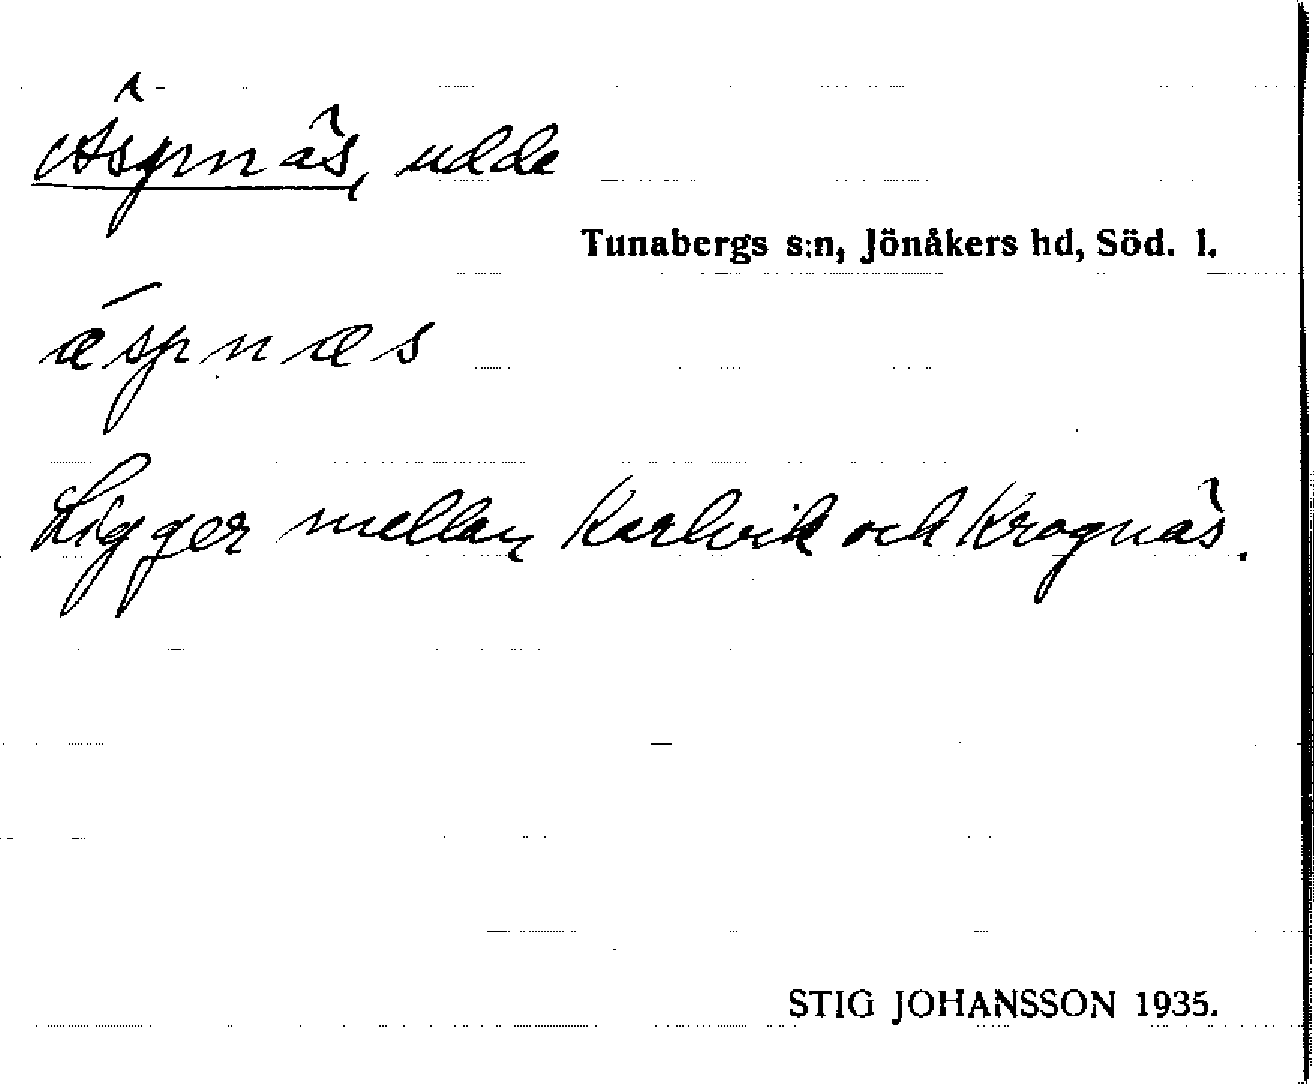 Äspnäs, udde
Tunabergs s:n, Jönåkers hd, Söd. l.
ǣspnæs
Ligger mellan Karlvik och Krognäs.
STIG JOHANSSON 1935.